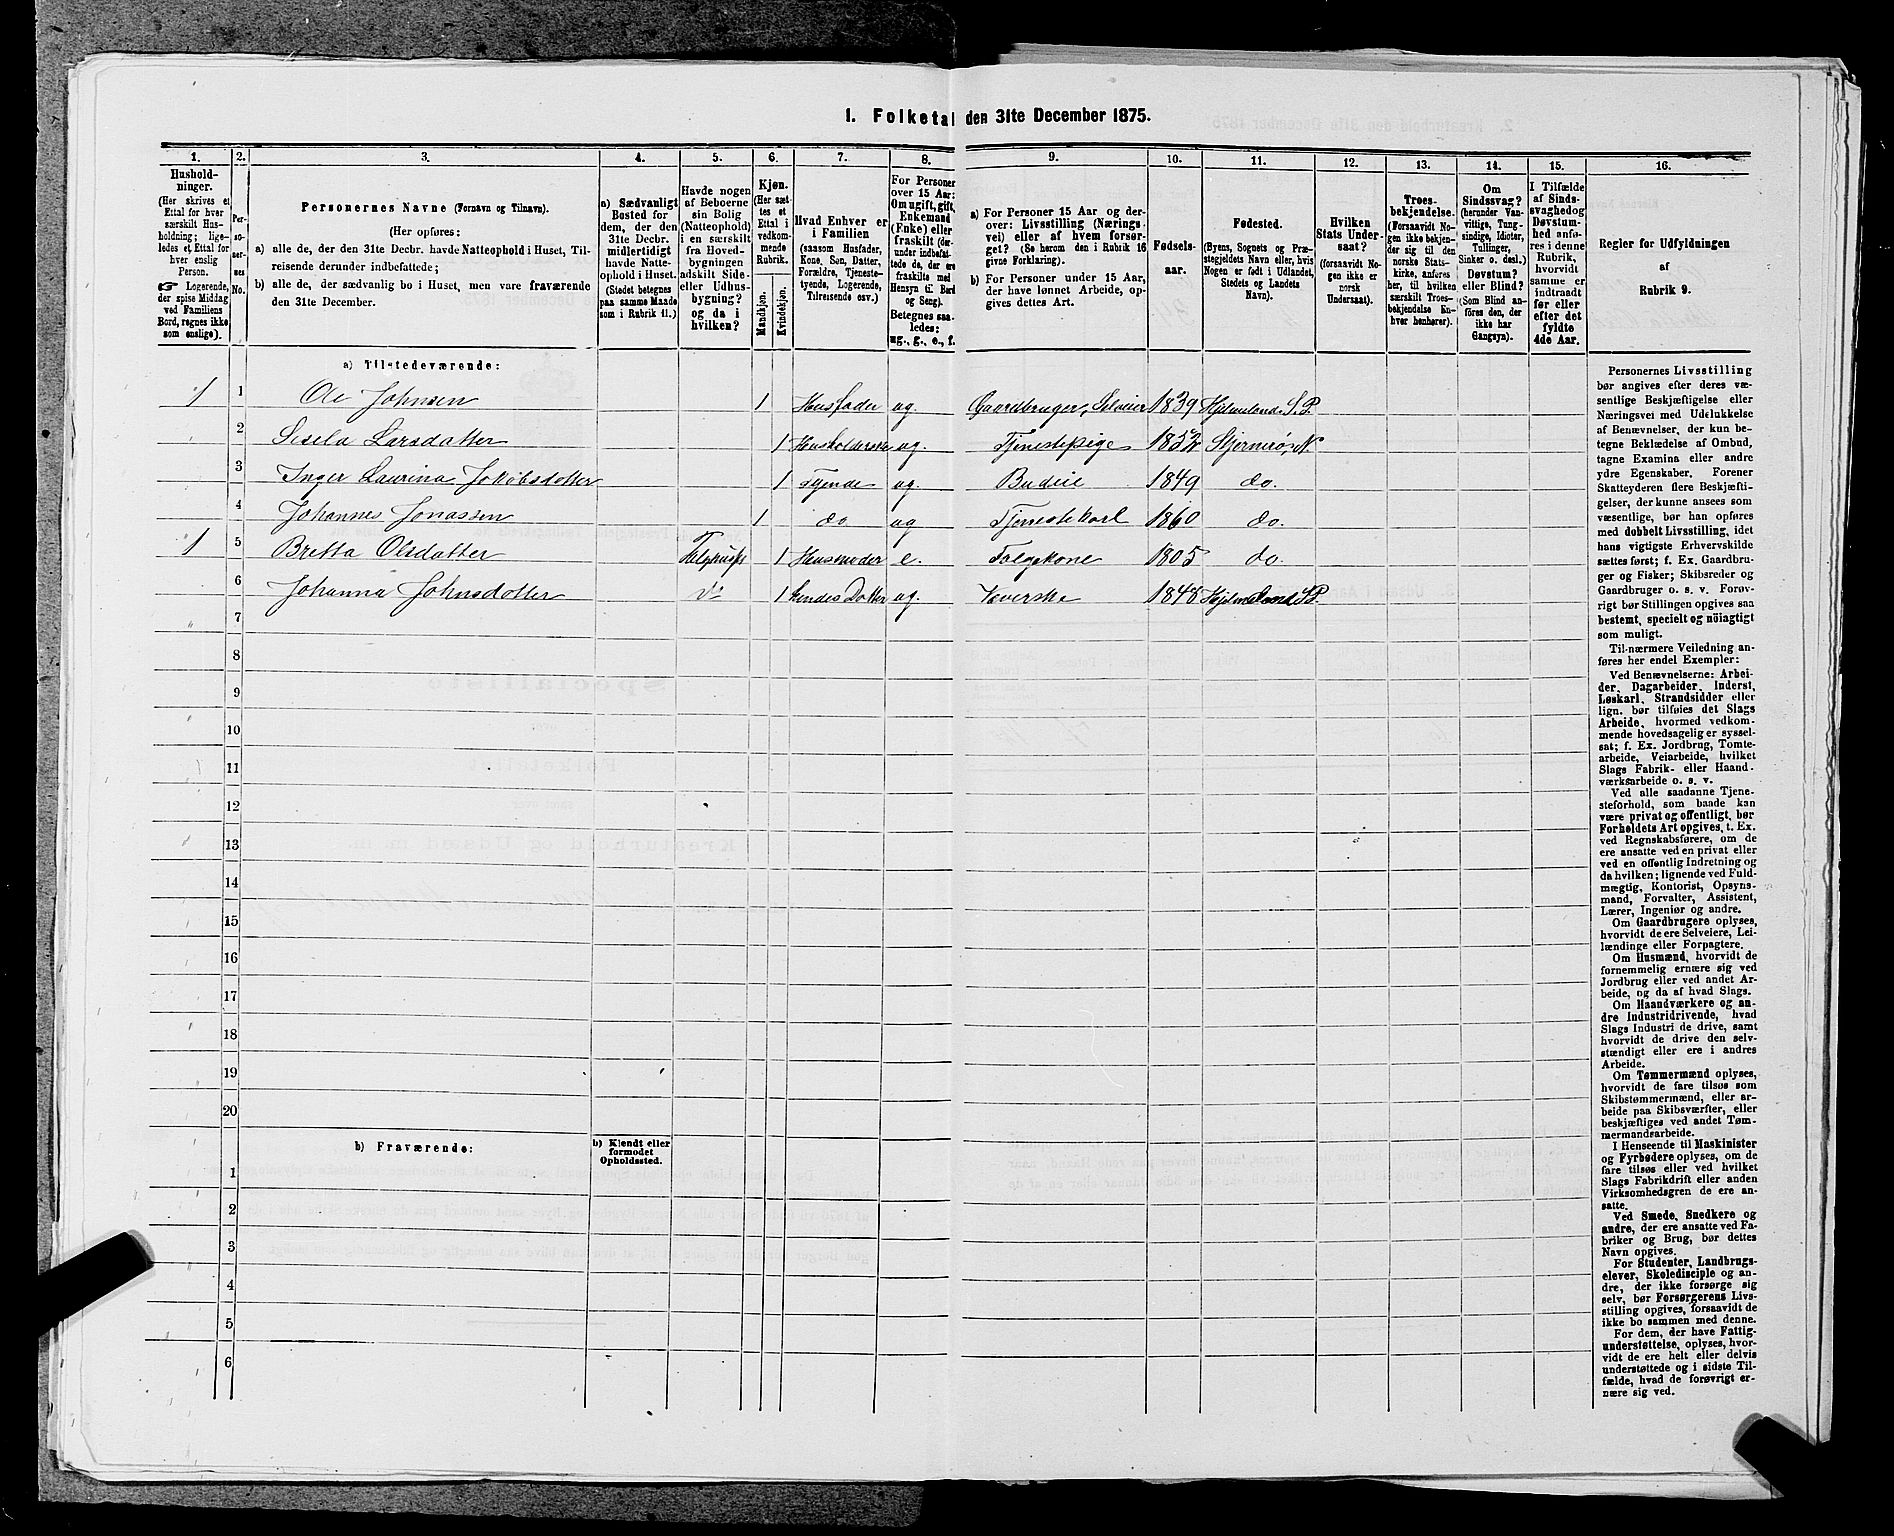 1. Folketal den 31te December 1875.
1.
2.
3.
4.
5.
6.
7.
8.
9.
10.
11.
12.
13.
14.
15.
16.
Hushold-
ninger.
(Her skrives et
Ettal for hver
særskilt Hus-
holdning; lige-
ledes et Ettal for
hver enslig
Person.
☞ Logerende,
der spise Middag
ved Familiens
Bord, regnes ikke
som enslige).
Per-
so-
ner-
nes
No.
Personernes Navne (Fornavn og Tilnavn).
(Her opføres:
a) alle de, der den 31te Decbr. havde Natteophold i Huset, Til-
reisende derunder indbefattede;
b) alle de, der sædvanlig bo i Huset, men vare fraværende
den 31te December.
a) Sædvanligt
Bosted for
dem, der den
31te Decbr.
midlertidigt
havde Natte-
ophold i Huset.
(Stedet betegnes
paa samme Maade
som i Rubrik 11.)
Havde nogen
af Beboerne
sin Bolig
(Natteophold)
i en særskilt
fra Hoved-
bygningen
adskilt Side-
eller Udhus-
bygning?
og da i
hvilken?
Kjøn.
(Her sæt-
tes et
Ettal i
vedkom-
mende
Rubrik.
Mandkjøn.
Kvindekjøn.
Hvad Enhver er
i Familien
(saasom Husfader,
Kone, Søn, Datter,
Forældre, Tjeneste-
tyende, Logerende,
Tilreisende osv.)
For Personer
over 15 Aar:
Om ugift, gift,
Enkemand
(Enke) eller
fraskilt (der-
under indbefat-
tede de, der ere
fraskilte med
Hensyn til Bord
og Seng).
Betegnes saa-
ledes:
ug., g., e., f.
a) For Personer 15 Aar og der-
over: Livsstilling (Nærings-
vei) eller af hvem forsør-
get? (Se herom den i Rubrik 16
givne Forklaring).
b) For Personer under 15 Aar,
der have lønnet Arbeide, op-
gives dettes Art.
Fødsels-
aar.
Fødested.
(Byens, Sognets og Præ-
stegjeldets Navn eller, hvis
Nogen er født i Udlandet,
Stedets og Landets
Navn).
Hvilken
Stats Under-
saat?
(forsaavidt No-
gen ikke er
norsk
Undersaat).
Troes-
bekjendelse.
(Forsaavidt No-
gen ikke bekjen-
der sig til den
norske Stats-
kirke, anføres
her, til hvilken
særskilt Troes-
bekjendelse En-
hver henhører).
Om
Sindssvag?
(herunder Van-
vittige, Tung-
sindige, Idioter,
Tullinger,
Sinker o. desl.)
Døvstum?
eller Blind?
(Som Blind an-
føres den, der
ikke har
Gangsyn).
I Tilfælde
af Sinds-
svaghed og
Døvstum-
hed anfø-
res i denne
Rubrik,
hvorvidt
samme er
indtraadt
før eller
efter det
fyldte
4de Aar.
Regler for Udfyldningen
af
Rubrik 9.
a) Tilstedeværende:
1 1 Ole Johnsen 1 Husfader ug. Gaardbruger, Selveier 1839 Hjelmeland S. P.
2 Sisela Larsdatter 1 Husholderske ug. Tjenestepige 1852 Stjernerø, N.
3 Inger Laurina Jakobsdotter 1 Tjende ug. Budeie 1849 do.
4 Johannes Jonassen 1 do ug Tjenestekarl 1860 do.
1 5 Bretta Olsdatter 1 Husmoder e. Folgekone 1805 do.
6 Johanna Johnsdotter 1 hendes Datter ug. 1848 Hjelmeland S.P.
7
8
9
10
11
12
13
14
15
16
17
18
19
20
b) Fraværende:
b) Kjendt eller
formodet
Opholdssted.
1
2
3
4
5
6
Personernes Livsstilling
bør angives efter deres væ-
sentlige Beskjæftigelse eller
Næringsvei med Udelukkelse
af Benævnelser, der kun be-
tegne Beklædelse af Ombud,
tagne Examina eller andre
ydre Egenskaber. Forener
Skatteyderen flere Beskjæfti-
gelser, der kunne ansees som
væsentlige, bør han opføres
med dobbelt Livsstilling, idet
hans vigtigste Erhvervskilde
sættes først; f. Ex. Gaardbru-
ger og Fisker; Skibsreder og
Gaardbruger o. s. v. Forøv-
rigt bør Stillingen opgives saa
bestemt, specielt og nöiagtigt
som muligt.
Til nærmere Veiledning an-
føres her endel Exempler:
Ved Benævnelserne: Arbei-
der, Dagarbeider, Inderst,
Løskarl, Strandsidder eller
lign. bør tilføies det Slags
Arbeide, hvormed vedkom-
mende hovedsagelig er syssel-
sat; f. Ex. Jordbrug, Tomte-
arbeide, Veiarbeide, hvilket
Slags Fabrik- eller Haand-
værksarbeide o. s. v.
Ved alle saadanne Tjene-
steforhold, som baade kan
være privat og offentligt, bør
Forholdets Art opgives, t. Ex.
ved Regnskabsførere, om de
ere ansatte ved en privat eller
ved en offentlig Indretning og
da hvilken; lignende ved Fuld-
mægtig, Kontorist, Opsyns-
mand, Forvalter, Assistent,
Lærer, Ingeniør og andre.
Om Gaardbrugere oplyses,
hvorvidt de ere Selveiere, Lei-
lændinge eller Forpagtere.
Om Husmænd, hvorvidt de
fornemmelig ernære sig ved
Jordbrug eller ved andet Ar-
beide, og da af hvad Slags.
Om Haandværkere og an-
dre Industridrivende, hvad
Slags Industri de drive, samt
hvorvidt de drive den selv-
stændigt eller ere i andres
Arbeide.
Om Tømmermænd oplyses,
hvorvidt de fare tilsøs som
Skibstømmermænd, eller ar-
beide paa Skibsværfter, eller
beskjæftiges ved andet Tøm-
mermandsarbeide.
I Henseende til Maskinister
og Fyrbødere oplyses, om de
fare tilsøs eller ved hvilket
Slags Fabrikdrift eller anden
Virksomhedsgren de ere an-
satte.
Ved Smede, Snedkere og
andre, der ere ansatte ved Fa-
briker og Brug, bør dettes
Navn opgives.
For Studenter, Landbrugs-
elever, Skoledisciple og an-
dre, der ikke forsørge sig
selv, bør Forsørgerens Livs-
stilling opgives, forsaavidt de
ikke bo sammen med denne.
For dem, der have Fattig-
understøttelse, oplyses, hvor-
vidt de ere helt eller delvis
understøttede og i sidste Til-
fælde, hvad de forøvrigt er-
nære sig ved.